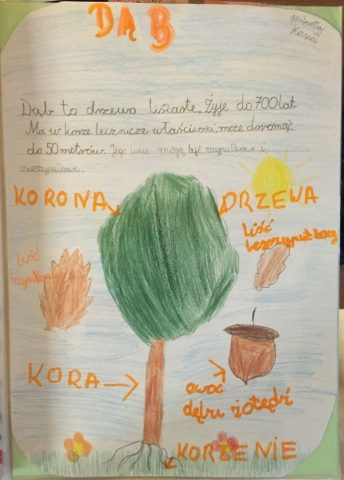 DĄB
Kasia
Dąb to drzewo liściaste. Żyje do 700 lat.
Ma w korze lecznicze właściwości, może dorosnąć
do 50 metrów. Jego liście mogą być szypułkowe i
KORONA DRZEWA
liść
liść
KORA
owoc
dębu żołędzi
KORZENIE